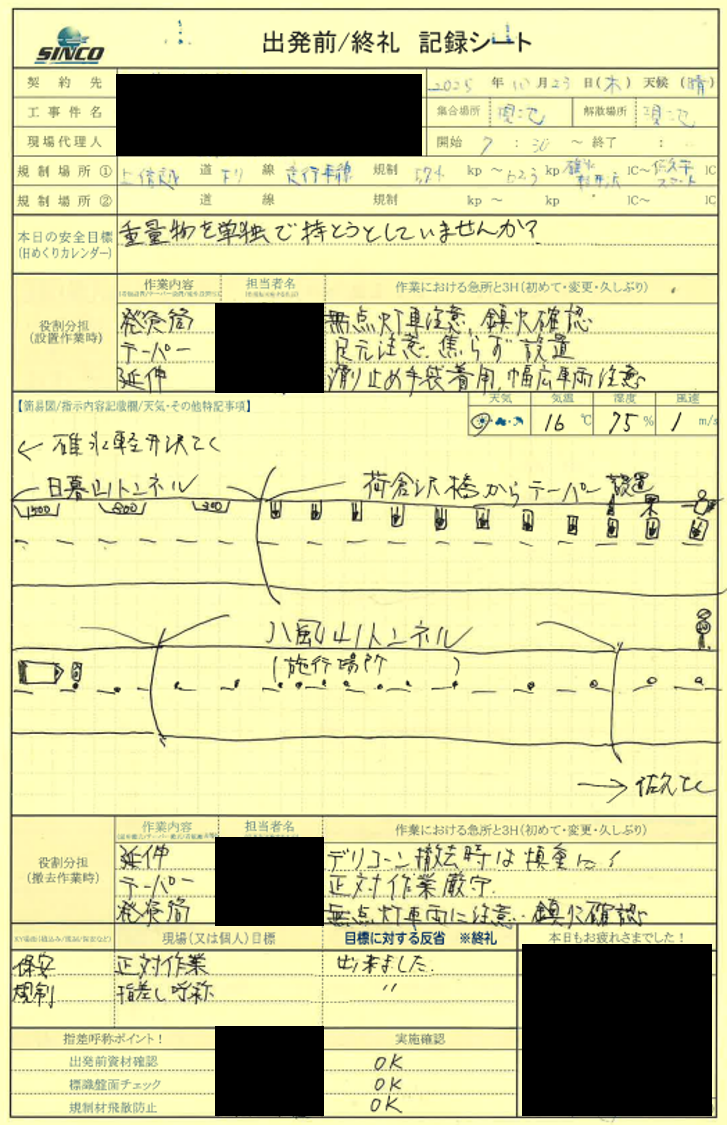 SINCO
出発前/終礼 記録シート
契約先
2025 年 10 月 23 日(木) 天候 (晴)
工事件名
集合場所 現地 解散場所 現地
現場代理人
開始 7 : 30 ~ 終了 :
規制場所① 上信越 道 下り 線 走行車線 規制 57.4 kp ~ 62.3 kp 碓氷軽井沢 IC~ 佐久平スマート IC
規制場所② 道 線 規制 kp ~ kp IC~ IC
本日の安全目標 重量物を単独で持とうとしていませんか?
(日めくりカレンダー)
作業内容 担当者名 作業における急所と3H(初めて・変更・久しぶり)
役割分担
(設置作業時)
発炎筒 無点灯車注意、鎮火確認
テーパー 足元注意、焦らず設置
延伸 滑り止め手袋着用、幅広車両注意
【簡易図/指示内容記載欄/天気・その他特記事項】
天気 気温 湿度 風速
16 ℃ 75 % 1 m/s
← 碓氷軽井沢IC
日暮山トンネル 荷倉沢橋からテーパー設置
1500 800 300
八風山トンネル
(施行場所)
→ 佐久IC
作業内容 担当者名 作業における急所と3H(初めて・変更・久しぶり)
役割分担
(撤去作業時)
延伸 デリコーン撤去時は慎重に!
テーパー 正対作業厳守.
発炎筒 無点灯車両に注意、鎮火確認
現場(又は個人)目標 目標に対する反省 ※終礼 本日もお疲れさまでした!
保安 正対作業 出来ました.
規制 指差し呼称 〃
指差呼称ポイント! 実施確認
出発前資材確認 OK
標識盤面チェック OK
規制材飛散防止 OK